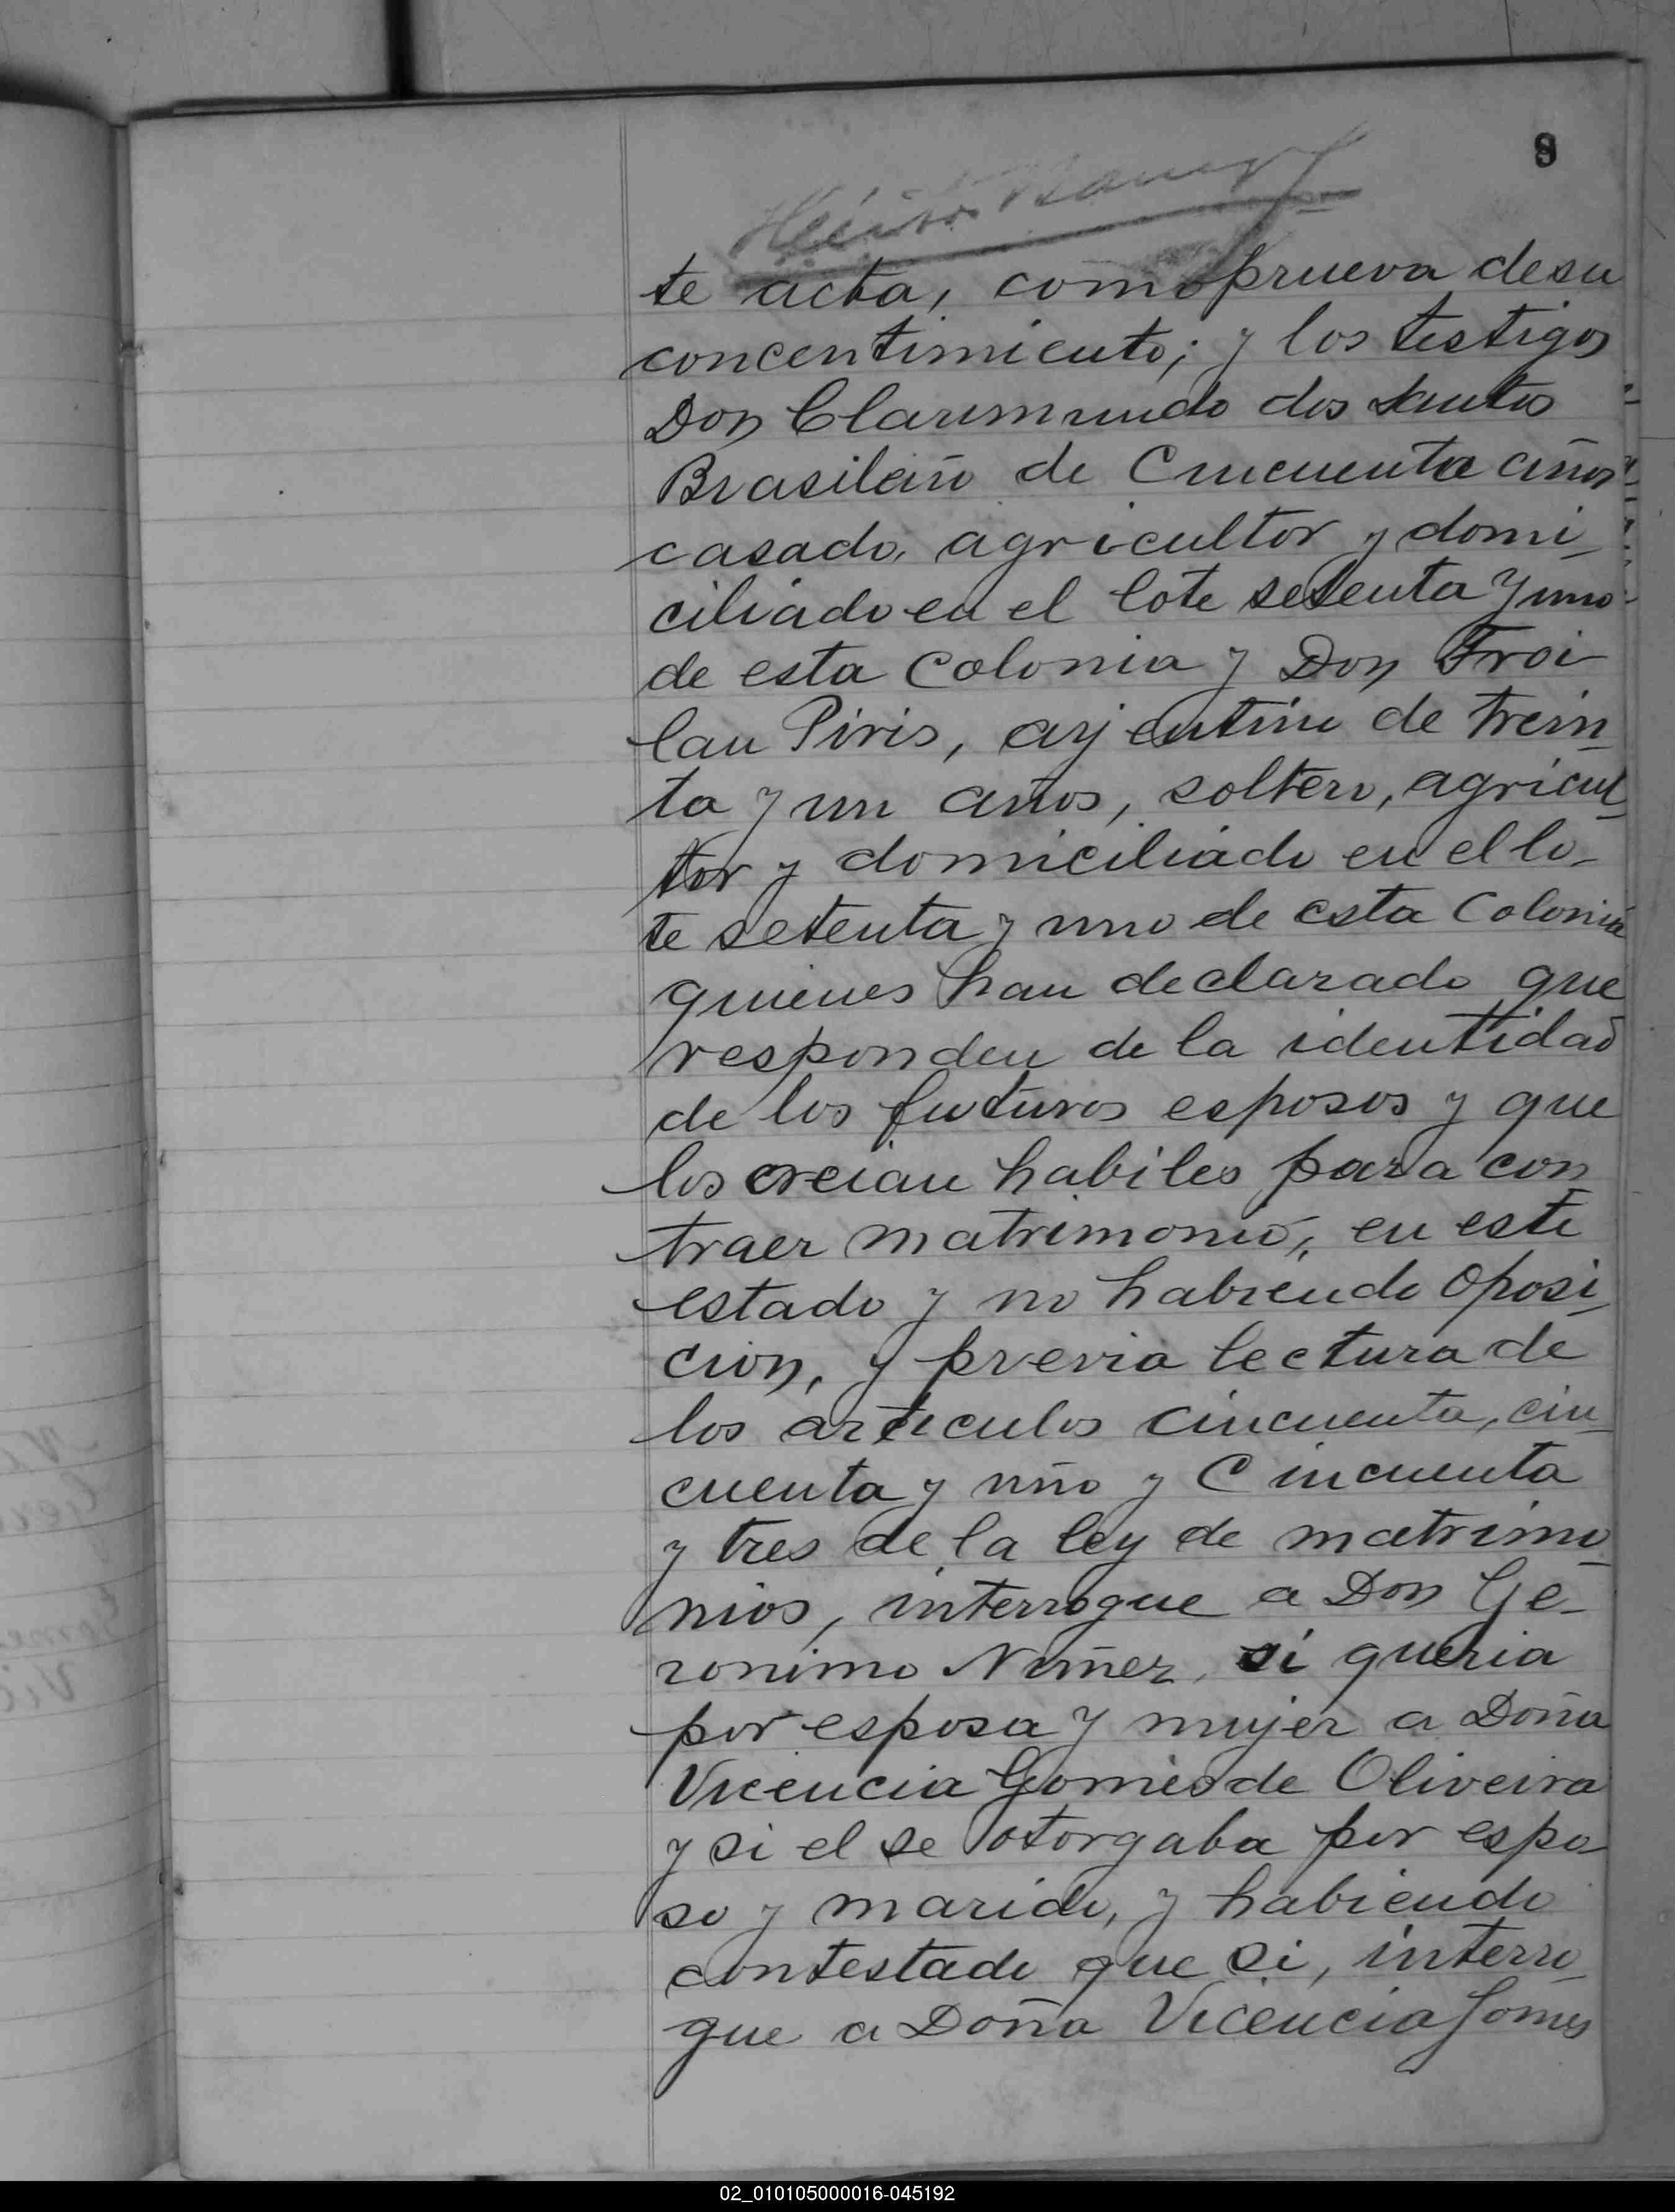 8
te acta, como prueva de su
concentimiento; y los testigos
Don Clarimundo dos Santos
Brasileño de Cincuenta años
casado, agricultor y domi-
ciliado en el lote setenta y uno
de esta Colonia y Don Froi-
lan Piris, arjentino de trein-
ta y un años, soltero, agricul-
tor y domiciliado en el lo-
te setenta y uno de esta Colonia
quienes han declarado que
responden de la identidad
de los futuros esposos y que
los creian habiles para con
traer matrimonio, en este
estado y no habiendo oposi-
cion, y previa lectura de
los articulos cincuenta, cin-
cuenta y uno y Cincuenta
y tres de la ley de matrimo-
nios, interrogue a Don Ge-
ronimo Nuñez, si queria
por esposa y mujer a Doña
Vicencia Gomes de Oliveira
y si el se otorgaba por espo-
so y marido, y habiendo
contestado que si, interro-
gue a Doña Vicencia Gomes
02_010105000016-045192